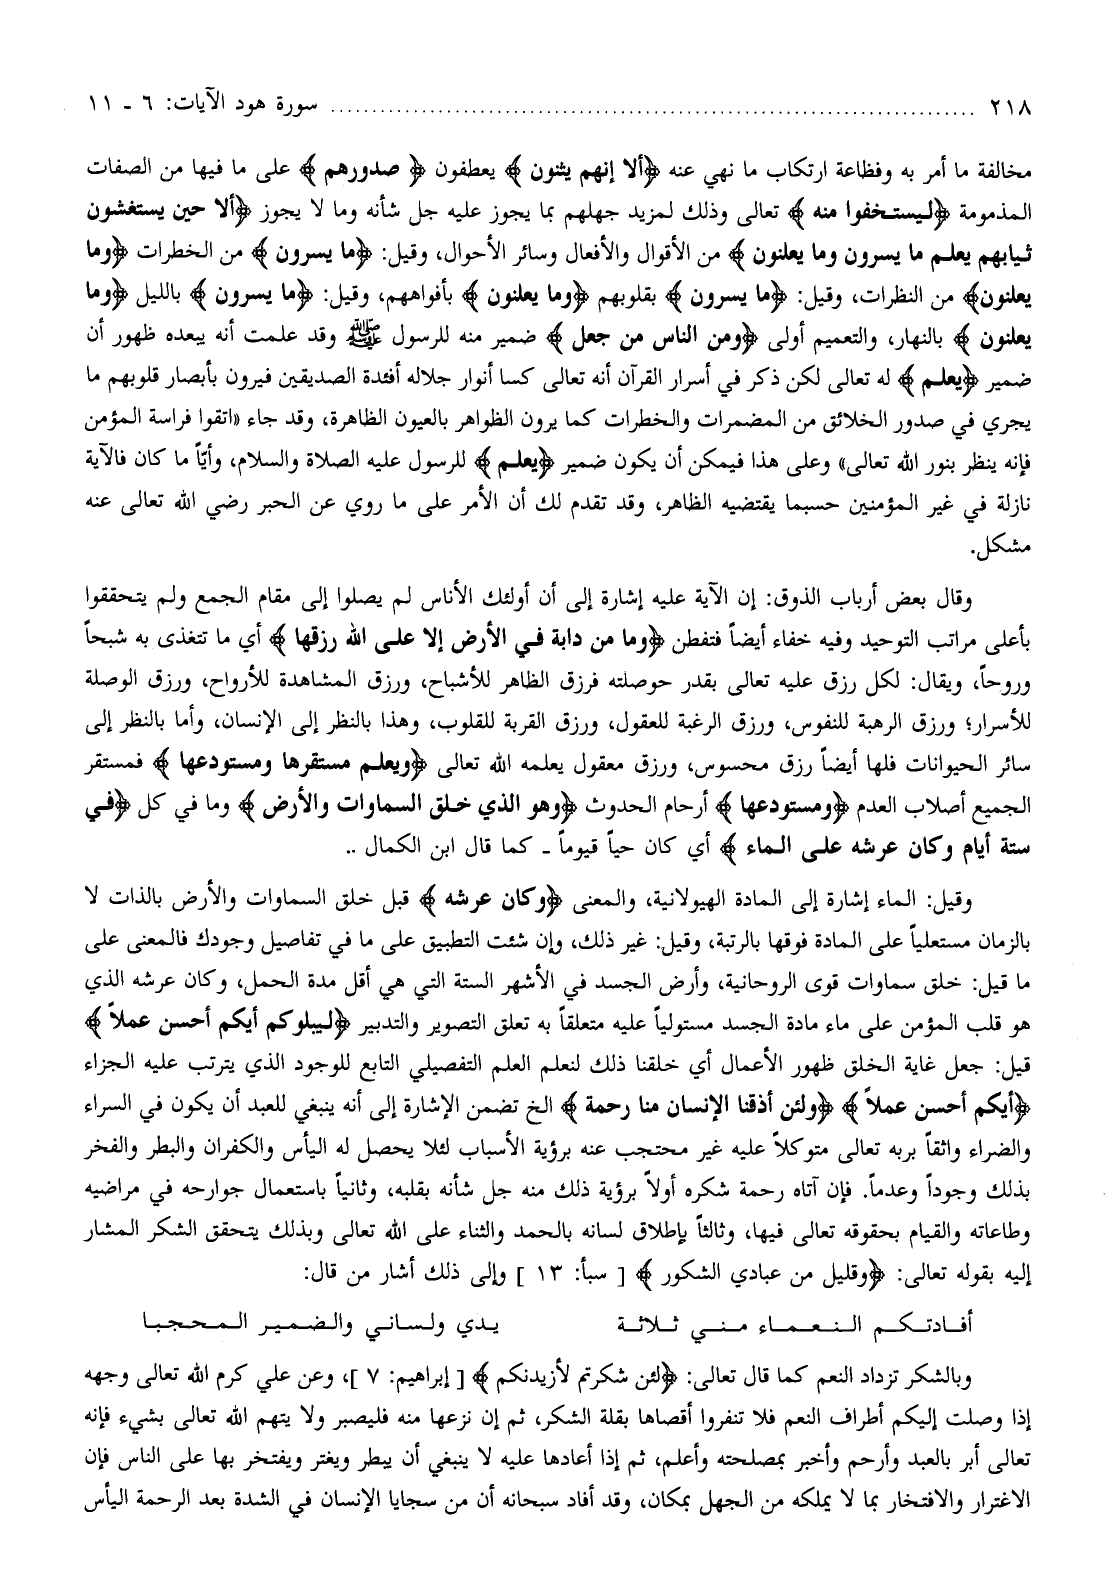 ٢١٨ ........................................................................ سورة هود الآيات: ٦ ـ ١١
مخالفة ما أمر به وفظاعة ارتكاب ما نهي عنه ﴿ألا إنهم يثنون﴾ يعطفون ﴿صدورهم﴾ على ما فيها من الصفات
المذمومة ﴿ليستخفوا منه﴾ تعالى وذلك لمزيد جهلهم بما يجوز عليه جل شأنه وما لا يجوز ﴿ألا حين يستغشون
ثيابهم يعلم ما يسرون وما يعلنون﴾ من الأقوال والأفعال وسائر الأحوال، وقيل: ﴿ما يسرون﴾ من الخطرات ﴿وما
يعلنون﴾ من النظرات، وقيل: ﴿ما يسرون﴾ بقلوبهم ﴿وما يعلنون﴾ بأفواههم، وقيل: ﴿ما يسرون﴾ بالليل ﴿وما
يعلنون﴾ بالنهار، والتعميم أولى ﴿ومن الناس من جعل﴾ ضمير منه للرسول ﷺ وقد علمت أنه يبعده ظهور أن
ضمير ﴿يعلم﴾ له تعالى لكن ذكر في أسرار القرآن أنه تعالى كسا أنوار جلاله أفئدة الصديقين فيرون بأبصار قلوبهم ما
يجري في صدور الخلائق من المضمرات والخطرات كما يرون الظواهر بالعيون الظاهرة، وقد جاء «اتقوا فراسة المؤمن
فإنه ينظر بنور الله تعالى» وعلى هذا فيمكن أن يكون ضمير ﴿يعلم﴾ للرسول عليه الصلاة والسلام، وأيّاً ما كان فالآية
نازلة في غير المؤمنين حسبما يقتضيه الظاهر، وقد تقدم لك أن الأمر على ما روي عن الحبر رضي الله تعالى عنه
مشكل.
وقال بعض أرباب الذوق: إن الآية عليه إشارة إلى أن أولئك الأناس لم يصلوا إلى مقام الجمع ولم يتحققوا
بأعلى مراتب التوحيد وفيه خفاء أيضاً فتفطن ﴿وما من دابة في الأرض إلا على الله رزقها﴾ أي ما تتغذى به شبحاً
وروحاً، ويقال: لكل رزق عليه تعالى بقدر حوصلته فرزق الظاهر للأشباح، ورزق المشاهدة للأرواح، ورزق الوصلة
للأسرار؛ ورزق الرهبة للنفوس، ورزق الرغبة للعقول، ورزق القربة للقلوب، وهذا بالنظر إلى الإنسان، وأما بالنظر إلى
سائر الحيوانات فلها أيضاً رزق محسوس، ورزق معقول يعلمه الله تعالى ﴿ويعلم مستقرها ومستودعها﴾ فمستقر
الجميع أصلاب العدم ﴿ومستودعها﴾ أرحام الحدوث ﴿وهو الذي خلق السماوات والأرض﴾ وما في كل ﴿في
ستة أيام وكان عرشه على الماء﴾ أي كان حياً قيوماً ـ كما قال ابن الكمال ..
وقيل: الماء إشارة إلى المادة الهيولانية، والمعنى ﴿وكان عرشه﴾ قبل خلق السماوات والأرض بالذات لا
بالزمان مستعلياً على المادة فوقها بالرتبة، وقيل: غير ذلك، وإن شئت التطبيق على ما في تفاصيل وجودك فالمعنى على
ما قيل: خلق سماوات قوى الروحانية، وأرض الجسد في الأشهر الستة التي هي أقل مدة الحمل، وكان عرشه الذي
هو قلب المؤمن على ماء مادة الجسد مستولياً عليه متعلقاً به تعلق التصوير والتدبير ﴿ليبلوكم أيكم أحسن عملاً﴾
قيل: جعل غاية الخلق ظهور الأعمال أي خلقنا ذلك لنعلم العلم التفصيلي التابع للوجود الذي يترتب عليه الجزاء
﴿أيكم أحسن عملاً﴾ ﴿ولئن أذقنا الإنسان منا رحمة﴾ الخ تضمن الإشارة إلى أنه ينبغي للعبد أن يكون في السراء
والضراء واثقاً بربه تعالى متوكلاً عليه غير محتجب عنه برؤية الأسباب لئلا يحصل له اليأس والكفران والبطر والفخر
بذلك وجوداً وعدماً. فإن آتاه رحمة شكره أولاً برؤية ذلك منه جل شأنه بقلبه، وثانياً باستعمال جوارحه في مراضيه
وطاعاته والقيام بحقوقه تعالى فيها، وثالثاً بإطلاق لسانه بالحمد والثناء على الله تعالى وبذلك يتحقق الشكر المشار
إليه بقوله تعالى: ﴿وقليل من عبادي الشكور﴾ [ سبأ: ١٣ ] وإلى ذلك أشار من قال:
أفادتكم النعماء مني ثلاثة يدي ولساني والضمير المحجبا
وبالشكر تزداد النعم كما قال تعالى: ﴿لئن شكرتم لأزيدنكم﴾ [ إبراهيم: ٧ ]، وعن علي كرم الله تعالى وجهه
إذا وصلت إليكم أطراف النعم فلا تنفروا أقصاها بقلة الشكر، ثم إن نزعها منه فليصبر ولا يتهم الله تعالى بشيء فإنه
تعالى أبر بالعبد وأرحم وأخبر بمصلحته وأعلم، ثم إذا أعادها عليه لا ينبغي أن يبطر ويغتر ويفتخر بها على الناس فإن
الاغترار والافتخار بما لا يملكه من الجهل بمكان، وقد أفاد سبحانه أن من سجايا الإنسان في الشدة بعد الرحمة اليأس